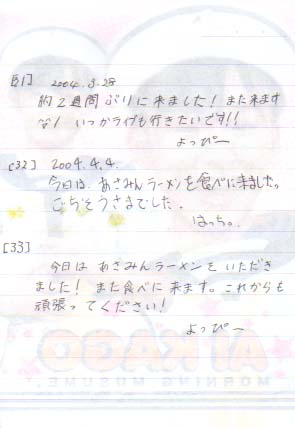 [31] 2004.3.28
約2週間ぶりに来ました！また来ます
な！いつかライブも行きたいです!!
よっぴー
[32] 2004.4.4.
今日は、あさみんラーメンを食べに来ました。
ごちそうさまでした。
はっち。
[33]
今日は あさみんラーメンを いただき
ました！また食べに来ます。これからも
頑張ってください！
よっぴー
AI KAGO
MORNING MUSUME。